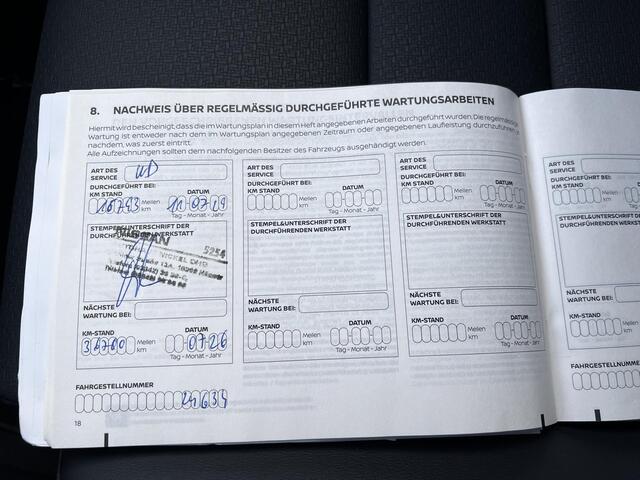 8. NACHWEIS ÜBER REGELMÄSSIG DURCHGEFÜHRTE WARTUNGSARBEITEN
Hiermit wird bescheinigt, dass die im Wartungsplan in diesem Heft angegebenen Arbeiten durchgeführt wurden. Die regelmässige
Wartung ist entweder nach dem im Wartungsplan angegebenen Zeitraum oder angegebenen Laufleistung durchzuführen, je
nachdem, was zuerst eintritt.
Alle Aufzeichnungen sollten dem nachfolgenden Besitzer des Fahrzeugs ausgehändigt werden.
ART DES
SERVICE
DURCHGEFÜHRT BEI:
KM STAND DATUM
Meilen
km
Tag - Monat - Jahr
STEMPEL&UNTERSCHRIFT DER
DURCHFÜHRENDEN WERKSTATT
NISSAN
5254
NICKEL
NÄCHSTE
WARTUNG BEI:
KM-STAND DATUM
Meilen
km
07-26
Tag - Monat - Jahr
ART DES
SERVICE
DURCHGEFÜHRT BEI:
KM STAND DATUM
Meilen
km
Tag - Monat - Jahr
STEMPEL&UNTERSCHRIFT DER
DURCHFÜHRENDEN WERKSTATT
NÄCHSTE
WARTUNG BEI:
KM-STAND DATUM
Meilen
km
Tag - Monat - Jahr
ART DES
SERVICE
DURCHGEFÜHRT BEI:
KM STAND DATUM
Meilen
km
Tag - Monat - Jahr
STEMPEL&UNTERSCHRIFT DER
DURCHFÜHRENDEN WERKSTATT
NÄCHSTE
WARTUNG BEI:
KM-STAND DATUM
Meilen
km
Tag - Monat - Jahr
FAHRGESTELLNUMMER
18
ART DES
SERVICE
DURCHGEFÜHRT
KM STAND
STEMPEL&UNT
DURCHFÜHREN
NÄCHSTE
WARTUNG BEI:
KM-STAND
FAHRGESTELLN